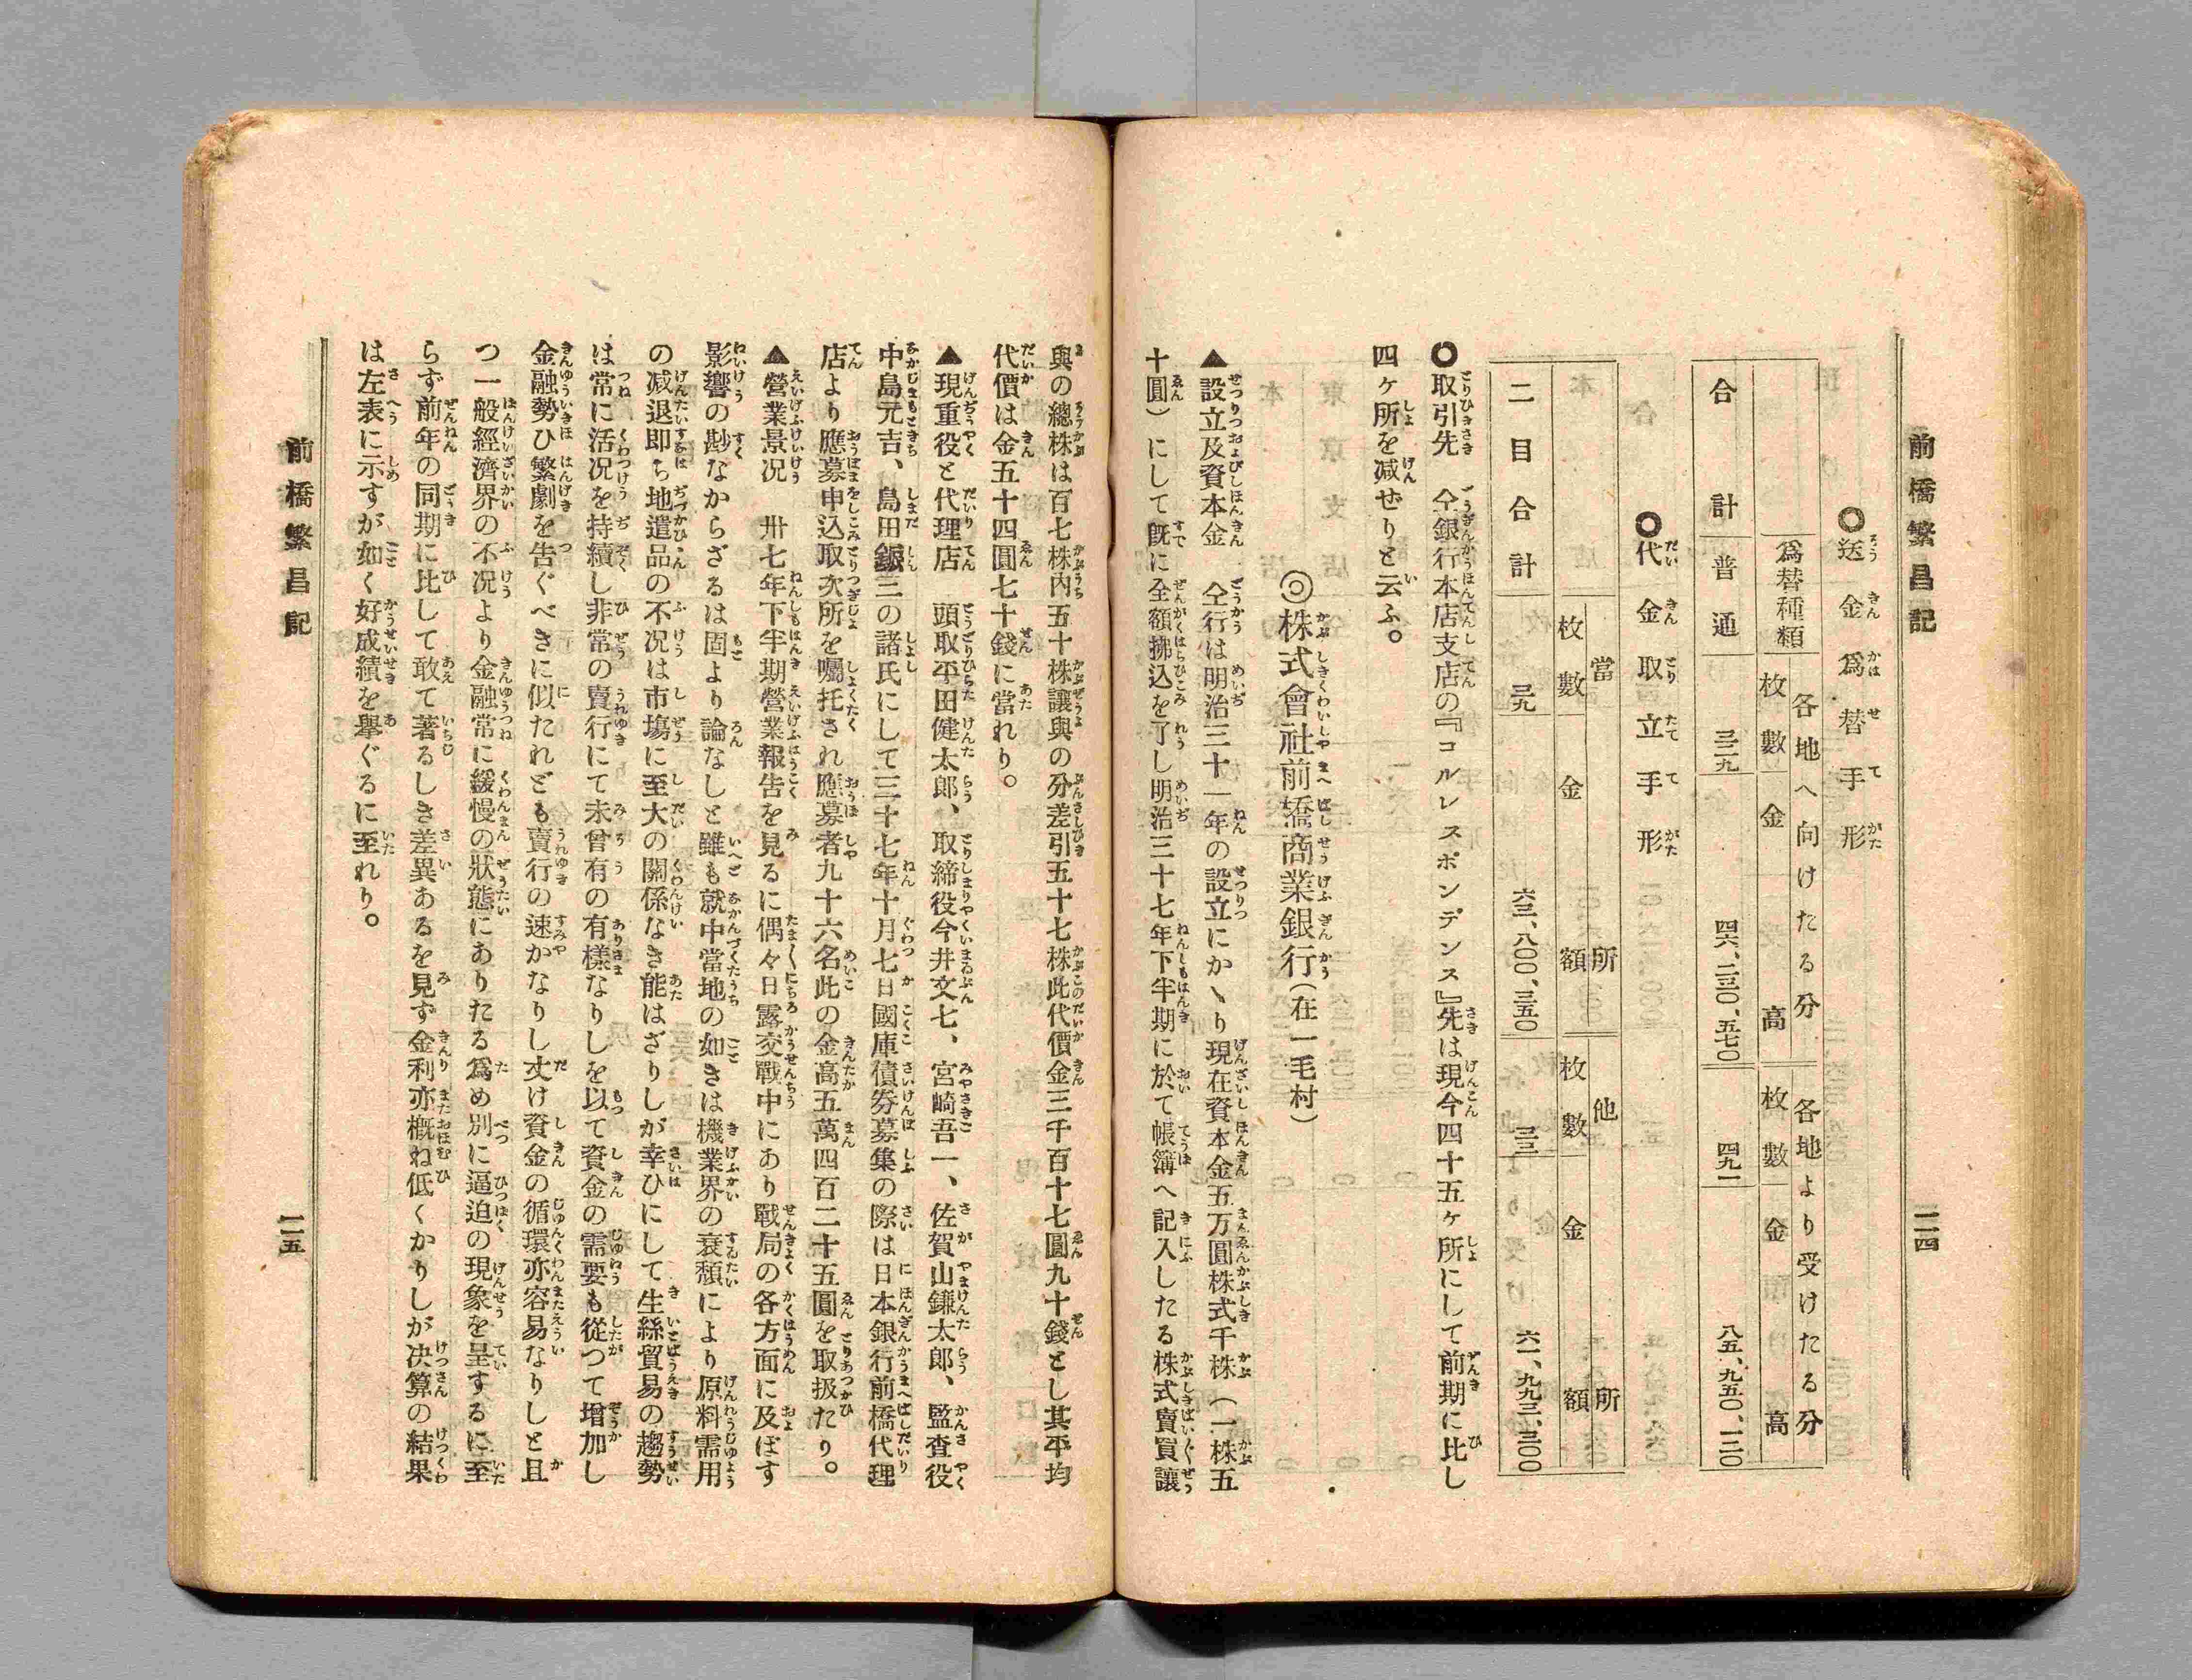 前橋繁昌記
二四
◎送金爲替手形
爲替種類
各地へ向けたる分
各地より受けたる分
枚數
金高
枚數
金高
合計
普通
三二九
四六、二三〇、五七〇
四九一
八五、九五〇、一二〇
◎代金取立手形
當所
他所
枚數
金額
枚數
金額
二目合計
三九
六三、八〇〇、三五〇
三三
六一、九九三、三〇〇
◎取引先 仝銀行本店支店の『コルレスポンデンス』先は現今四十五ヶ所にして前期に比し
四ヶ所を减せりと云ふ。
◎株式會社前橋商業銀行(在一毛村)
▲設立及資本金 仝行は明治三十一年の設立にかヽり現在資本金五万圓株式千株(一株五
十圓)にして既に全額拂込を了し明治三十七年下半期に於て帳簿へ記入したる株式賣買讓
與の總株は百七株内五十株讓與の分差引五十七株此代價金三千百十七圓九十錢とし其平均
代價は金五十四圓七十錢に當れり。
▲現重役と代理店 頭取平田健太郎、取締役今井文七、宮崎吾一、佐賀山鎌太郎、監査役
中島元吉、島田銀三の諸氏にして三十七年十月七日國庫債券募集の際は日本銀行前橋代理
店より應募申込取次所を囑托され應募者九十六名此の金高五萬四百二十五圓を取扱たり。
▲營業景况 卅七年下半期營業報告を見るに偶々日露交戰中にあり戰局の各方面に及ぼす
影響の尠なからざるは固より論なしと雖も就中當地の如きは機業界の衰頽により原料需用
の减退即ち地遣品の不况は市塲に至大の關係なき能はざりしが幸ひにして生絲貿易の趨勢
は常に活况を持續し非常の賣行にて未曾有の有樣なりしを以て資金の需要も從つて增加し
金融勢ひ繁劇を告ぐべきに似たれども賣行の速かなりし丈け資金の循環亦容易なりしと且
つ一般經濟界の不况より金融常に緩慢の狀態にありたる爲め別に逼迫の現象を呈するに至
らず前年の同期に比して敢て著るしき差異あるを見ず金利亦概ね低くかりしが决算の結果
は左表に示すが如く好成績を擧ぐるに至れり。
前橋繁昌記
二五